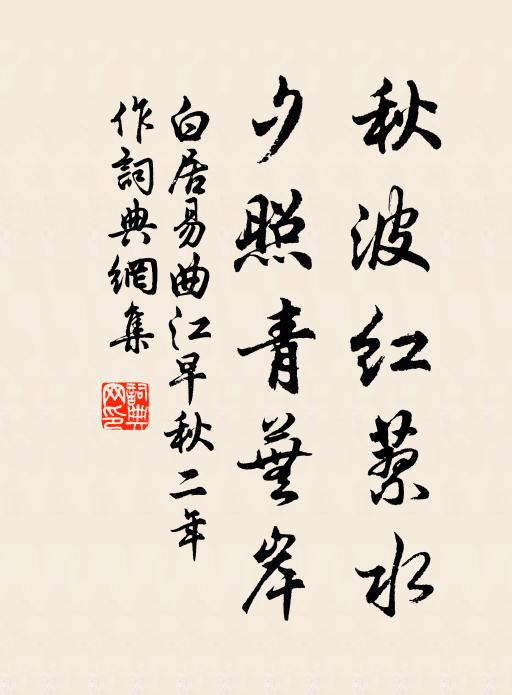 秋波红蓼水
夕照青蕪岸
白居易曲江早秋二年
作詞典網集
詞典網印